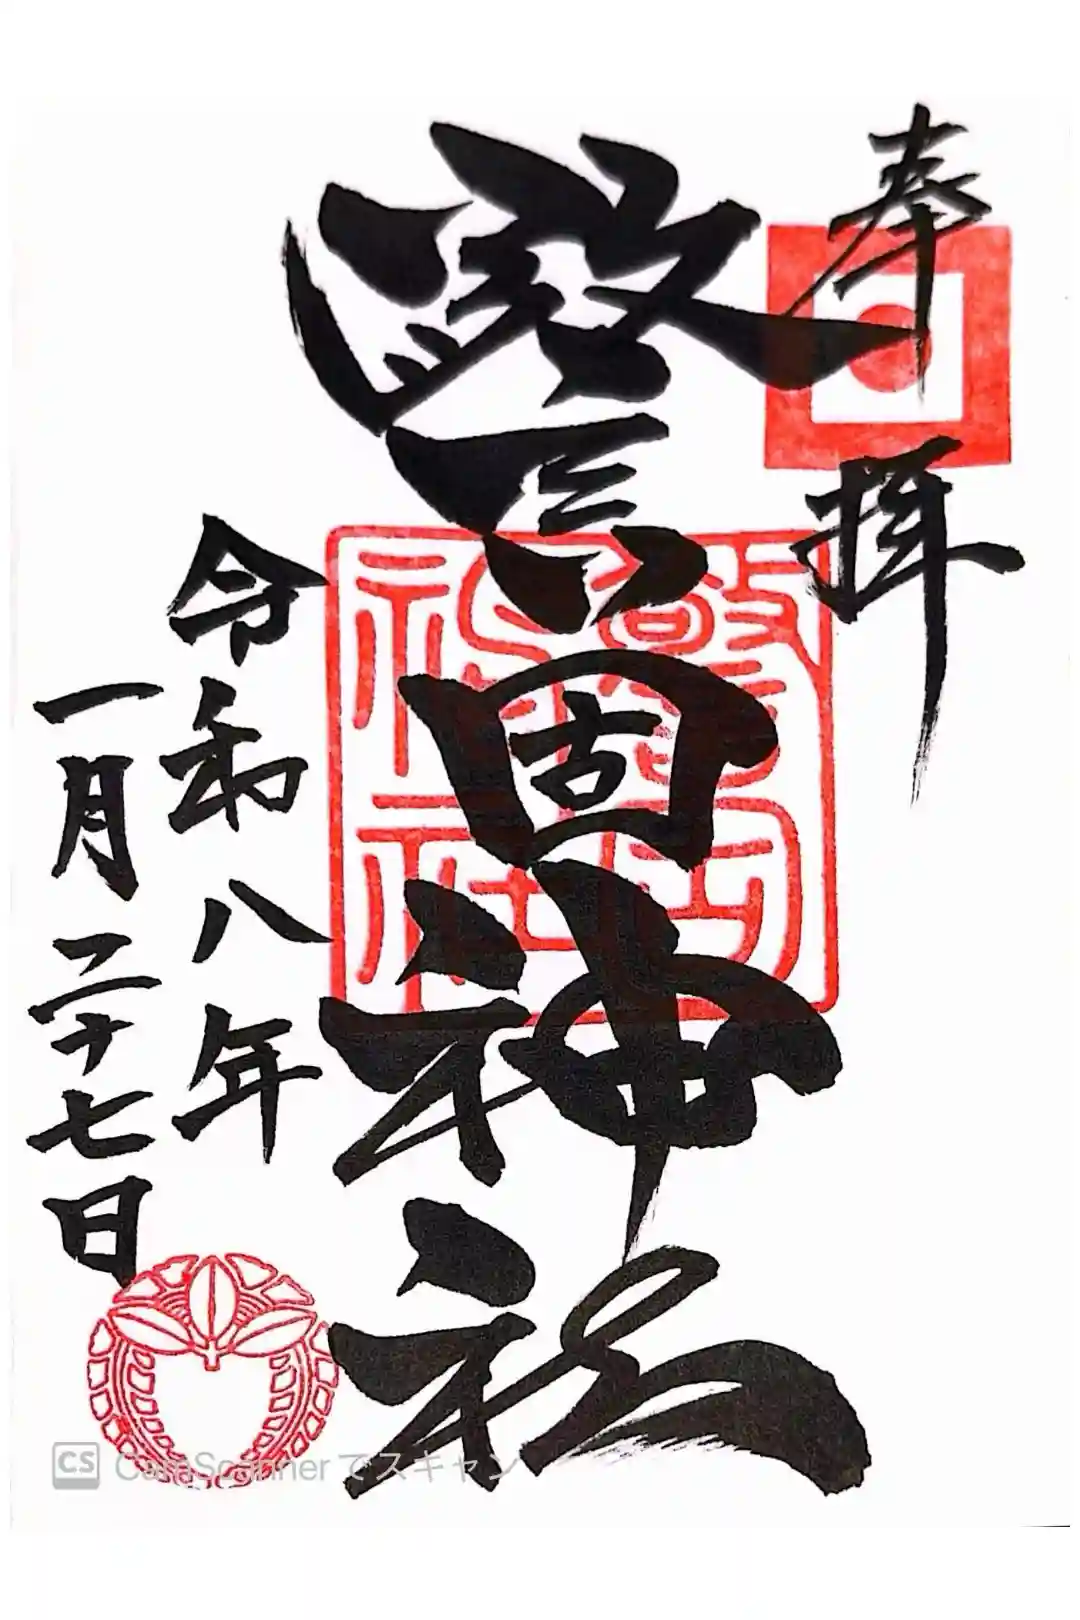 奉拝
警固神社
令和八年
一月二十七日
警固
神社
CS CamScanner でスキャン